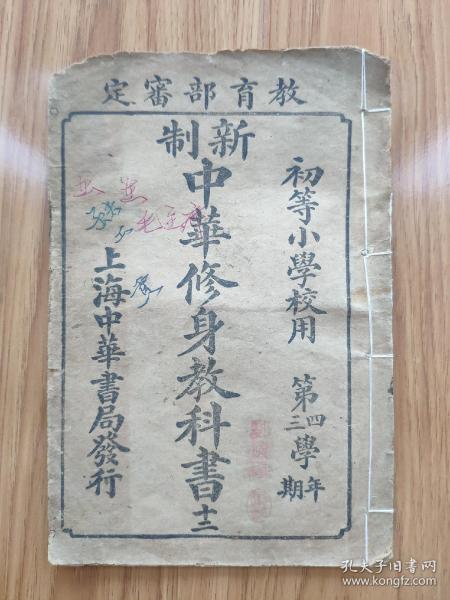 教育部審定
初等小學校用
第四學年
第三學期
新制
中華修身教科書 十二
上海中華書局發行
孔夫子旧书网
www.kongfz.com